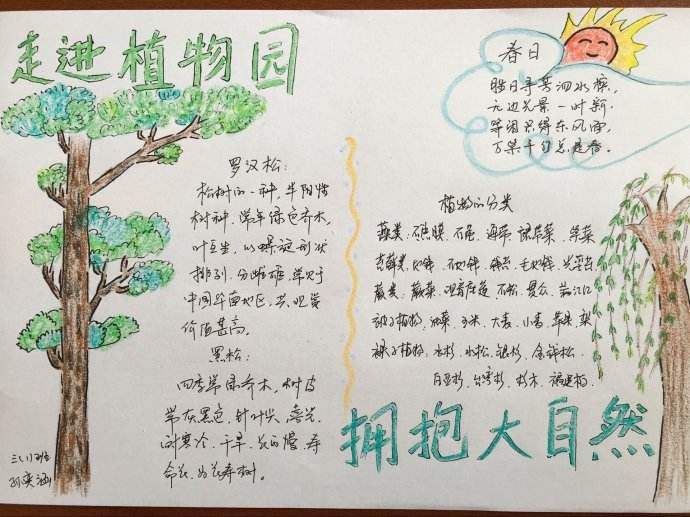 走进植物园
罗汉松：
松树的一种，半阴性
树种，常年绿色乔木，
叶互生，以螺旋形状
排列，分雌雄，单大于
中国华南地区，其观赏
价值甚高。
黑松：
四季常绿乔木，树皮
常灰黑色，针叶尖，喜光
耐寒冷、干旱、长的慢，寿
命长，为长寿树。
三（1）班
春日
胜日寻芳泗水滨，
无边光景一时新，
等闲只得东风面，
万紫千红总是春。
植物的分类
藻类：石莼 海带 裙带菜 紫菜
苔藓类：地钱
蕨类：蕨菜 观音座莲 石松 贯众
被子植物：油菜、玉米、大麦、小麦
裸子植物：水杉、水松、银杉、金钱松
白豆杉、台湾杉、杉木、福建柏
拥抱大自然